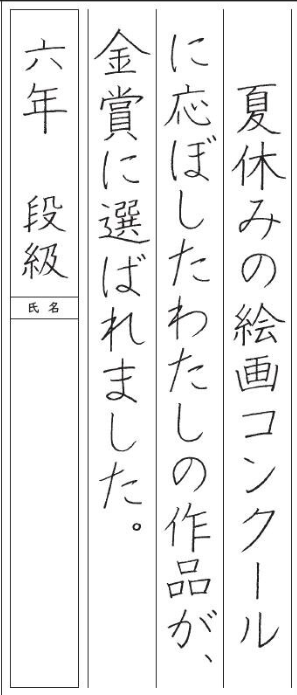 夏休みの絵画コンクール
に応ぼしたわたしの作品が、
金賞に選ばれました。
六年　段級
氏名